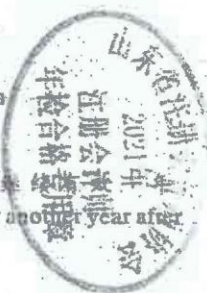 山东省注册
2021年
注册会计师
年检合格专用章
another year after